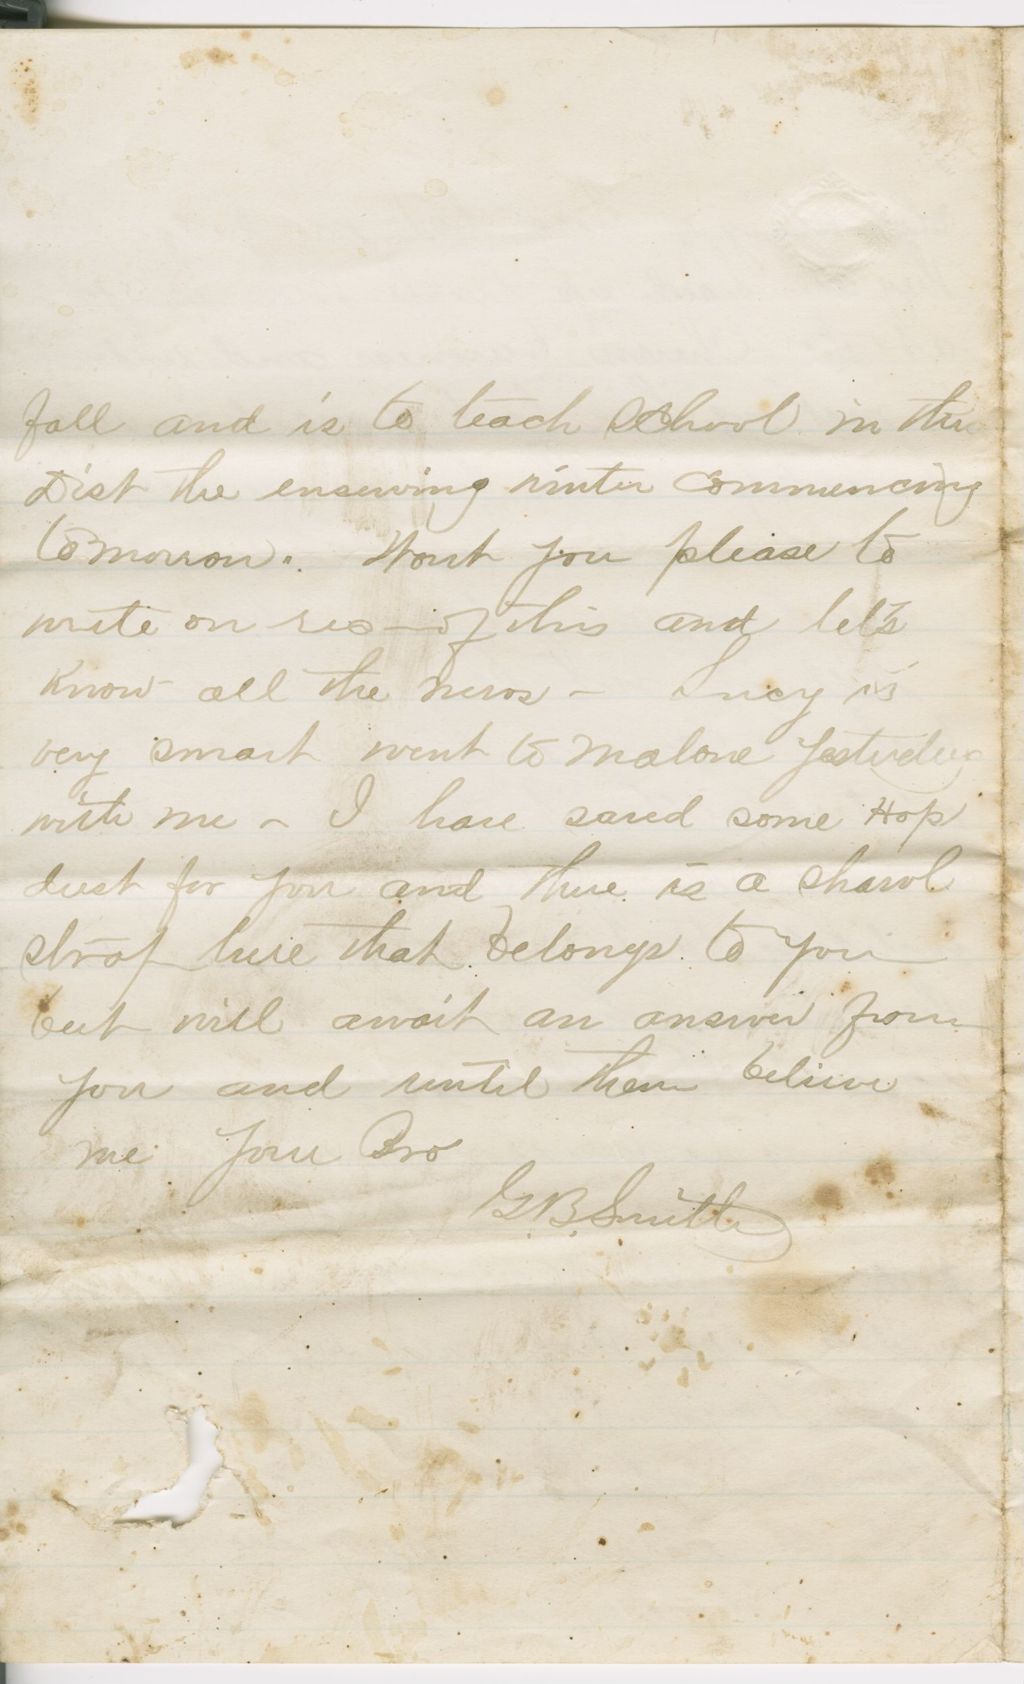 fall and is to teach School in this
Dist the ensewing winter commencing
tomorrow. Wont you please to
write on rec- of this and let's
Know all the news - Lucy is
very smart went to Malone Yesterday
with me - I have saved some Hop
dust for you and there is a shawl
strap here that belongs to you
but will await an answer from
you and until then believe
me Your Bro
G.B. Smith